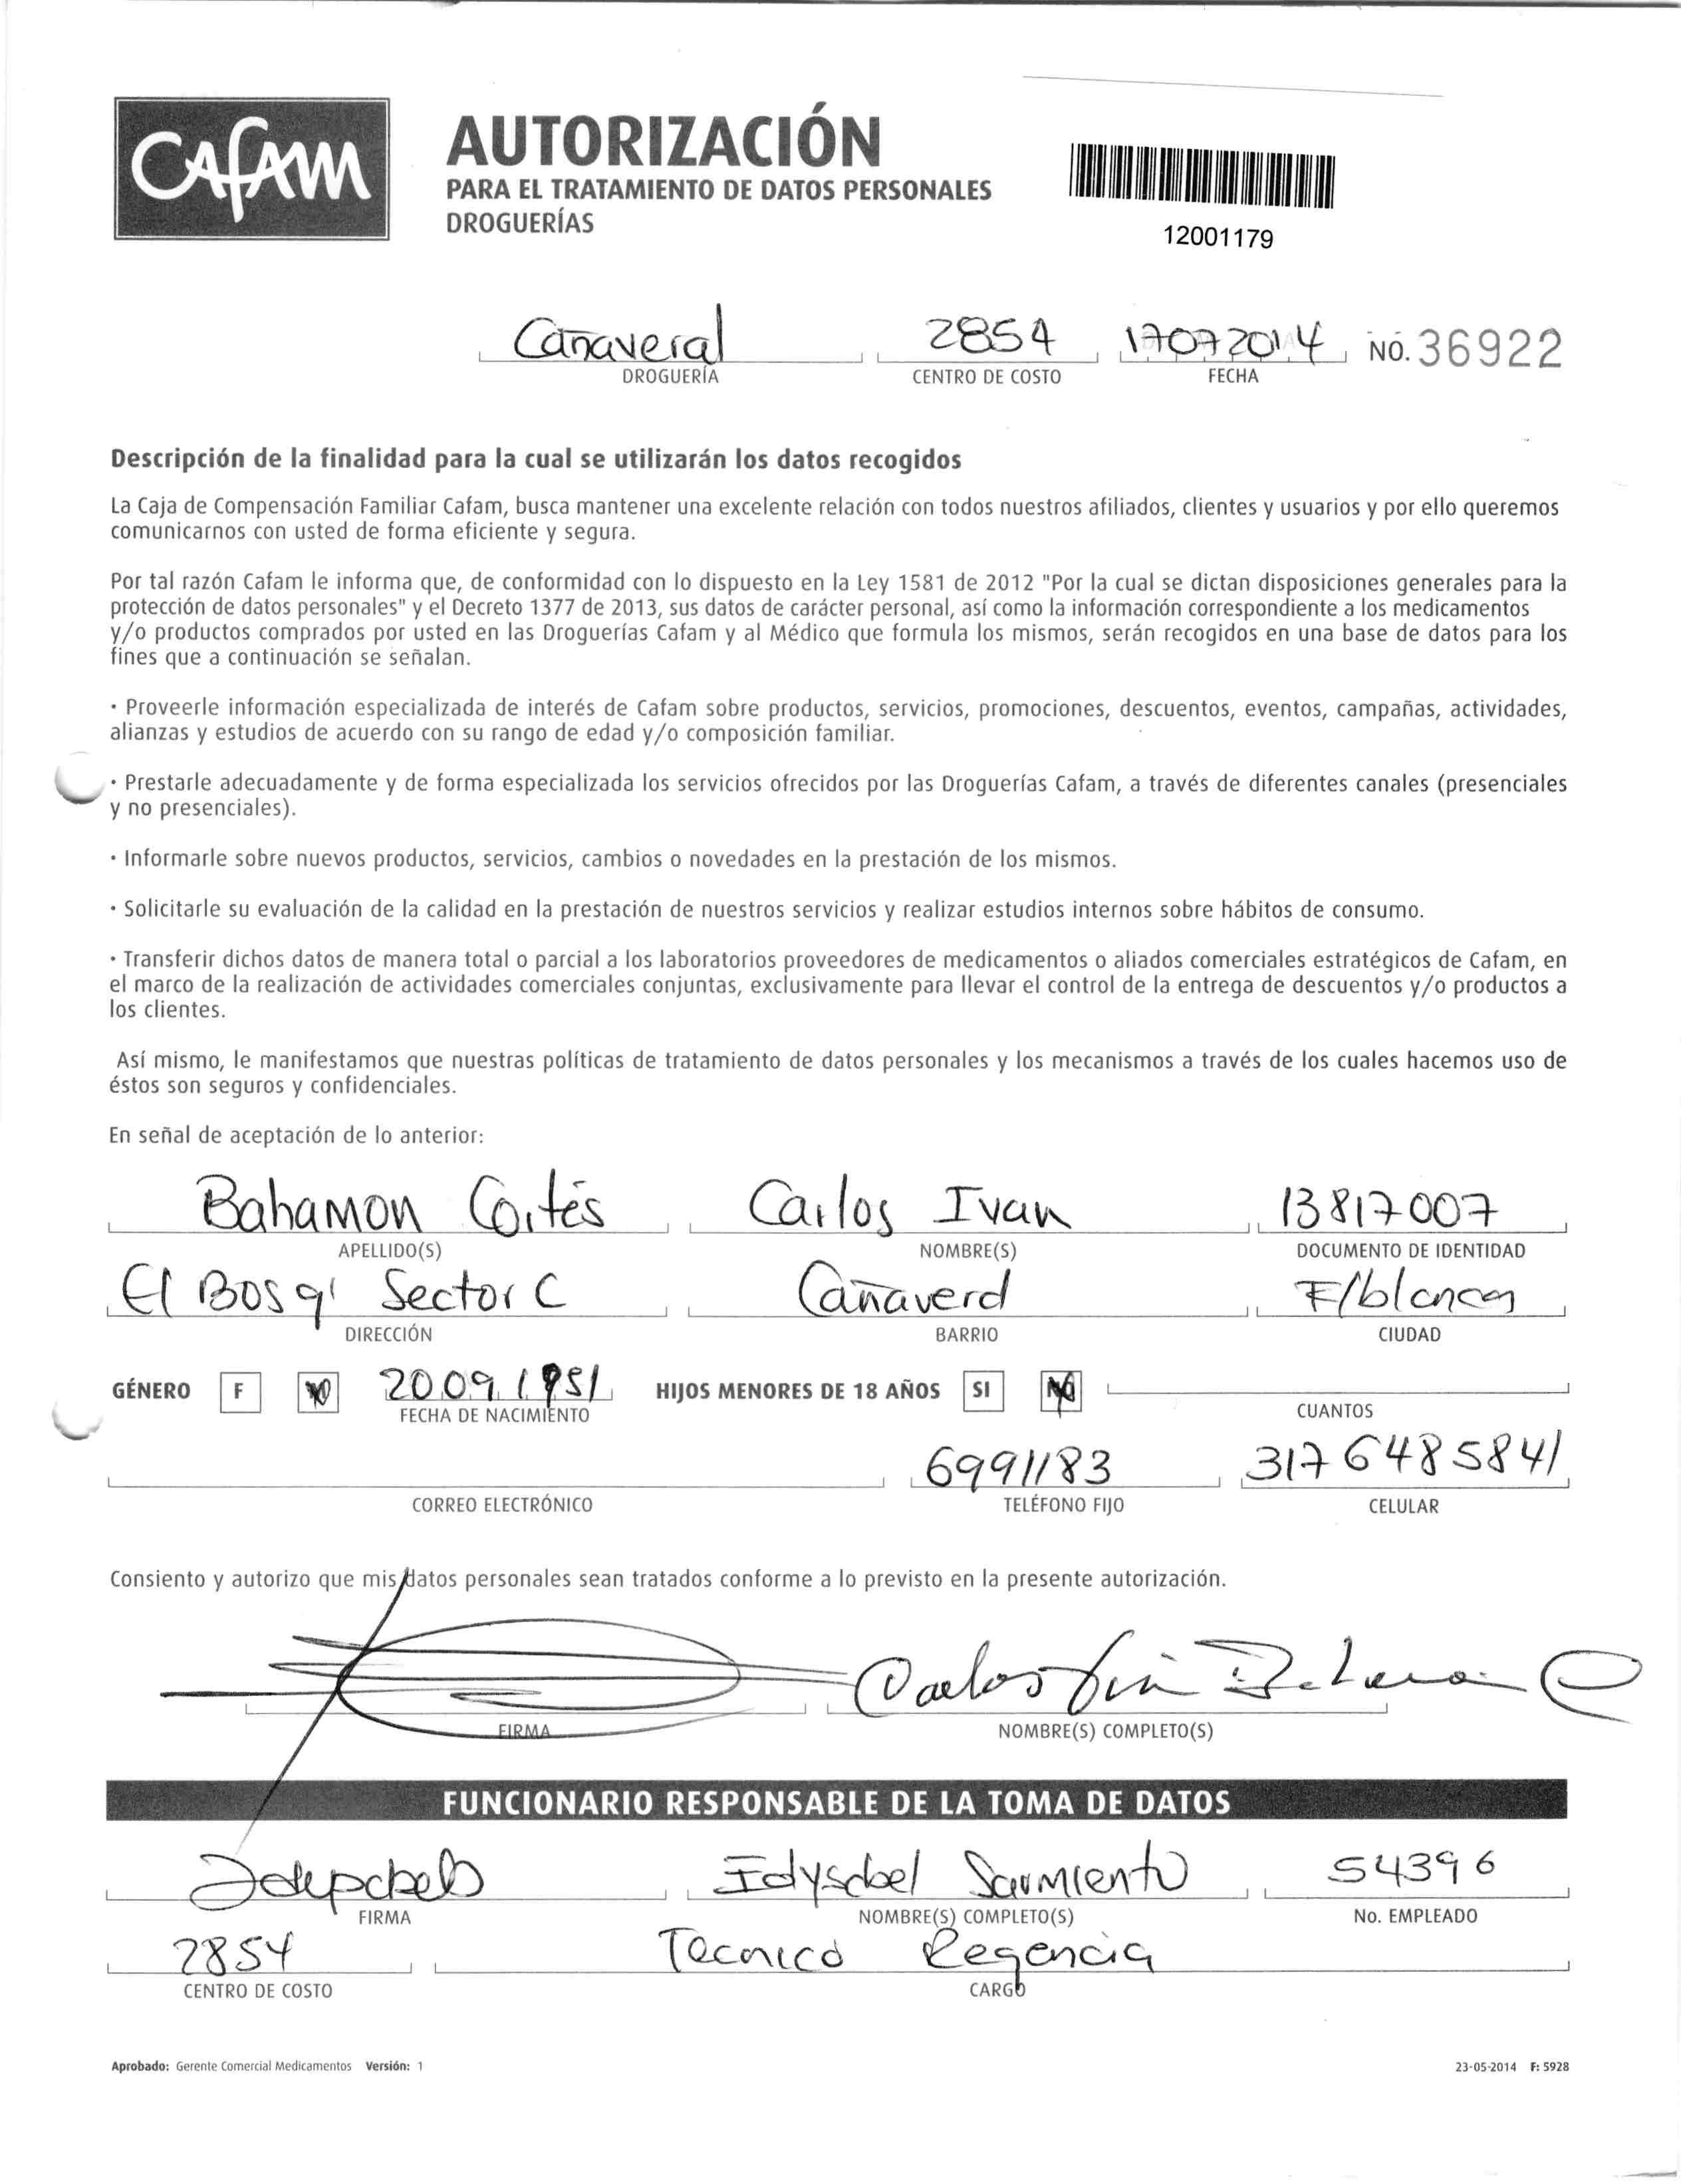 CAFAM
AUTORIZACIÓN
PARA EL TRATAMIENTO DE DATOS PERSONALES
DROGUERÍAS
12001179
Cañaveral 2854 17072014 NO. 36922
DROGUERÍA CENTRO DE COSTO FECHA
Descripción de la finalidad para la cual se utilizarán los datos recogidos
La Caja de Compensación Familiar Cafam, busca mantener una excelente relación con todos nuestros afiliados, clientes y usuarios y por ello queremos
comunicarnos con usted de forma eficiente y segura.
Por tal razón Cafam le informa que, de conformidad con lo dispuesto en la Ley 1581 de 2012 "Por la cual se dictan disposiciones generales para la
protección de datos personales" y el Decreto 1377 de 2013, sus datos de carácter personal, así como la información correspondiente a los medicamentos
y/o productos comprados por usted en las Droguerías Cafam y al Médico que formula los mismos, serán recogidos en una base de datos para los
fines que a continuación se señalan.
· Proveerle información especializada de interés de Cafam sobre productos, servicios, promociones, descuentos, eventos, campañas, actividades,
alianzas y estudios de acuerdo con su rango de edad y/o composición familiar.
· Prestarle adecuadamente y de forma especializada los servicios ofrecidos por las Droguerías Cafam, a través de diferentes canales (presenciales
y no presenciales).
· Informarle sobre nuevos productos, servicios, cambios o novedades en la prestación de los mismos.
· Solicitarle su evaluación de la calidad en la prestación de nuestros servicios y realizar estudios internos sobre hábitos de consumo.
· Transferir dichos datos de manera total o parcial a los laboratorios proveedores de medicamentos o aliados comerciales estratégicos de Cafam, en
el marco de la realización de actividades comerciales conjuntas, exclusivamente para llevar el control de la entrega de descuentos y/o productos a
los clientes.
Así mismo, le manifestamos que nuestras políticas de tratamiento de datos personales y los mecanismos a través de los cuales hacemos uso de
éstos son seguros y confidenciales.
En señal de aceptación de lo anterior:
Bahamon Cortés Carlos Ivan 13817007
APELLIDO(S) NOMBRE(S) DOCUMENTO DE IDENTIDAD
El Bosq' Sector C Cañaveral F/blanca
DIRECCIÓN BARRIO CIUDAD
GÉNERO F 20091951 HIJOS MENORES DE 18 AÑOS SI NO
FECHA DE NACIMIENTO CUANTOS
6991183 3176485841
CORREO ELECTRÓNICO TELÉFONO FIJO CELULAR
Consiento y autorizo que mis datos personales sean tratados conforme a lo previsto en la presente autorización.
Carlos Ivan Bahamon C
FIRMA NOMBRE(S) COMPLETO(S)
FUNCIONARIO RESPONSABLE DE LA TOMA DE DATOS
Idysabel Sarmiento 54396
FIRMA NOMBRE(S) COMPLETO(S) No. EMPLEADO
2854 Tecnico Regencia
CENTRO DE COSTO CARGO
Aprobado: Gerente Comercial Medicamentos Versión: 1 23-05-2014 F: 5928